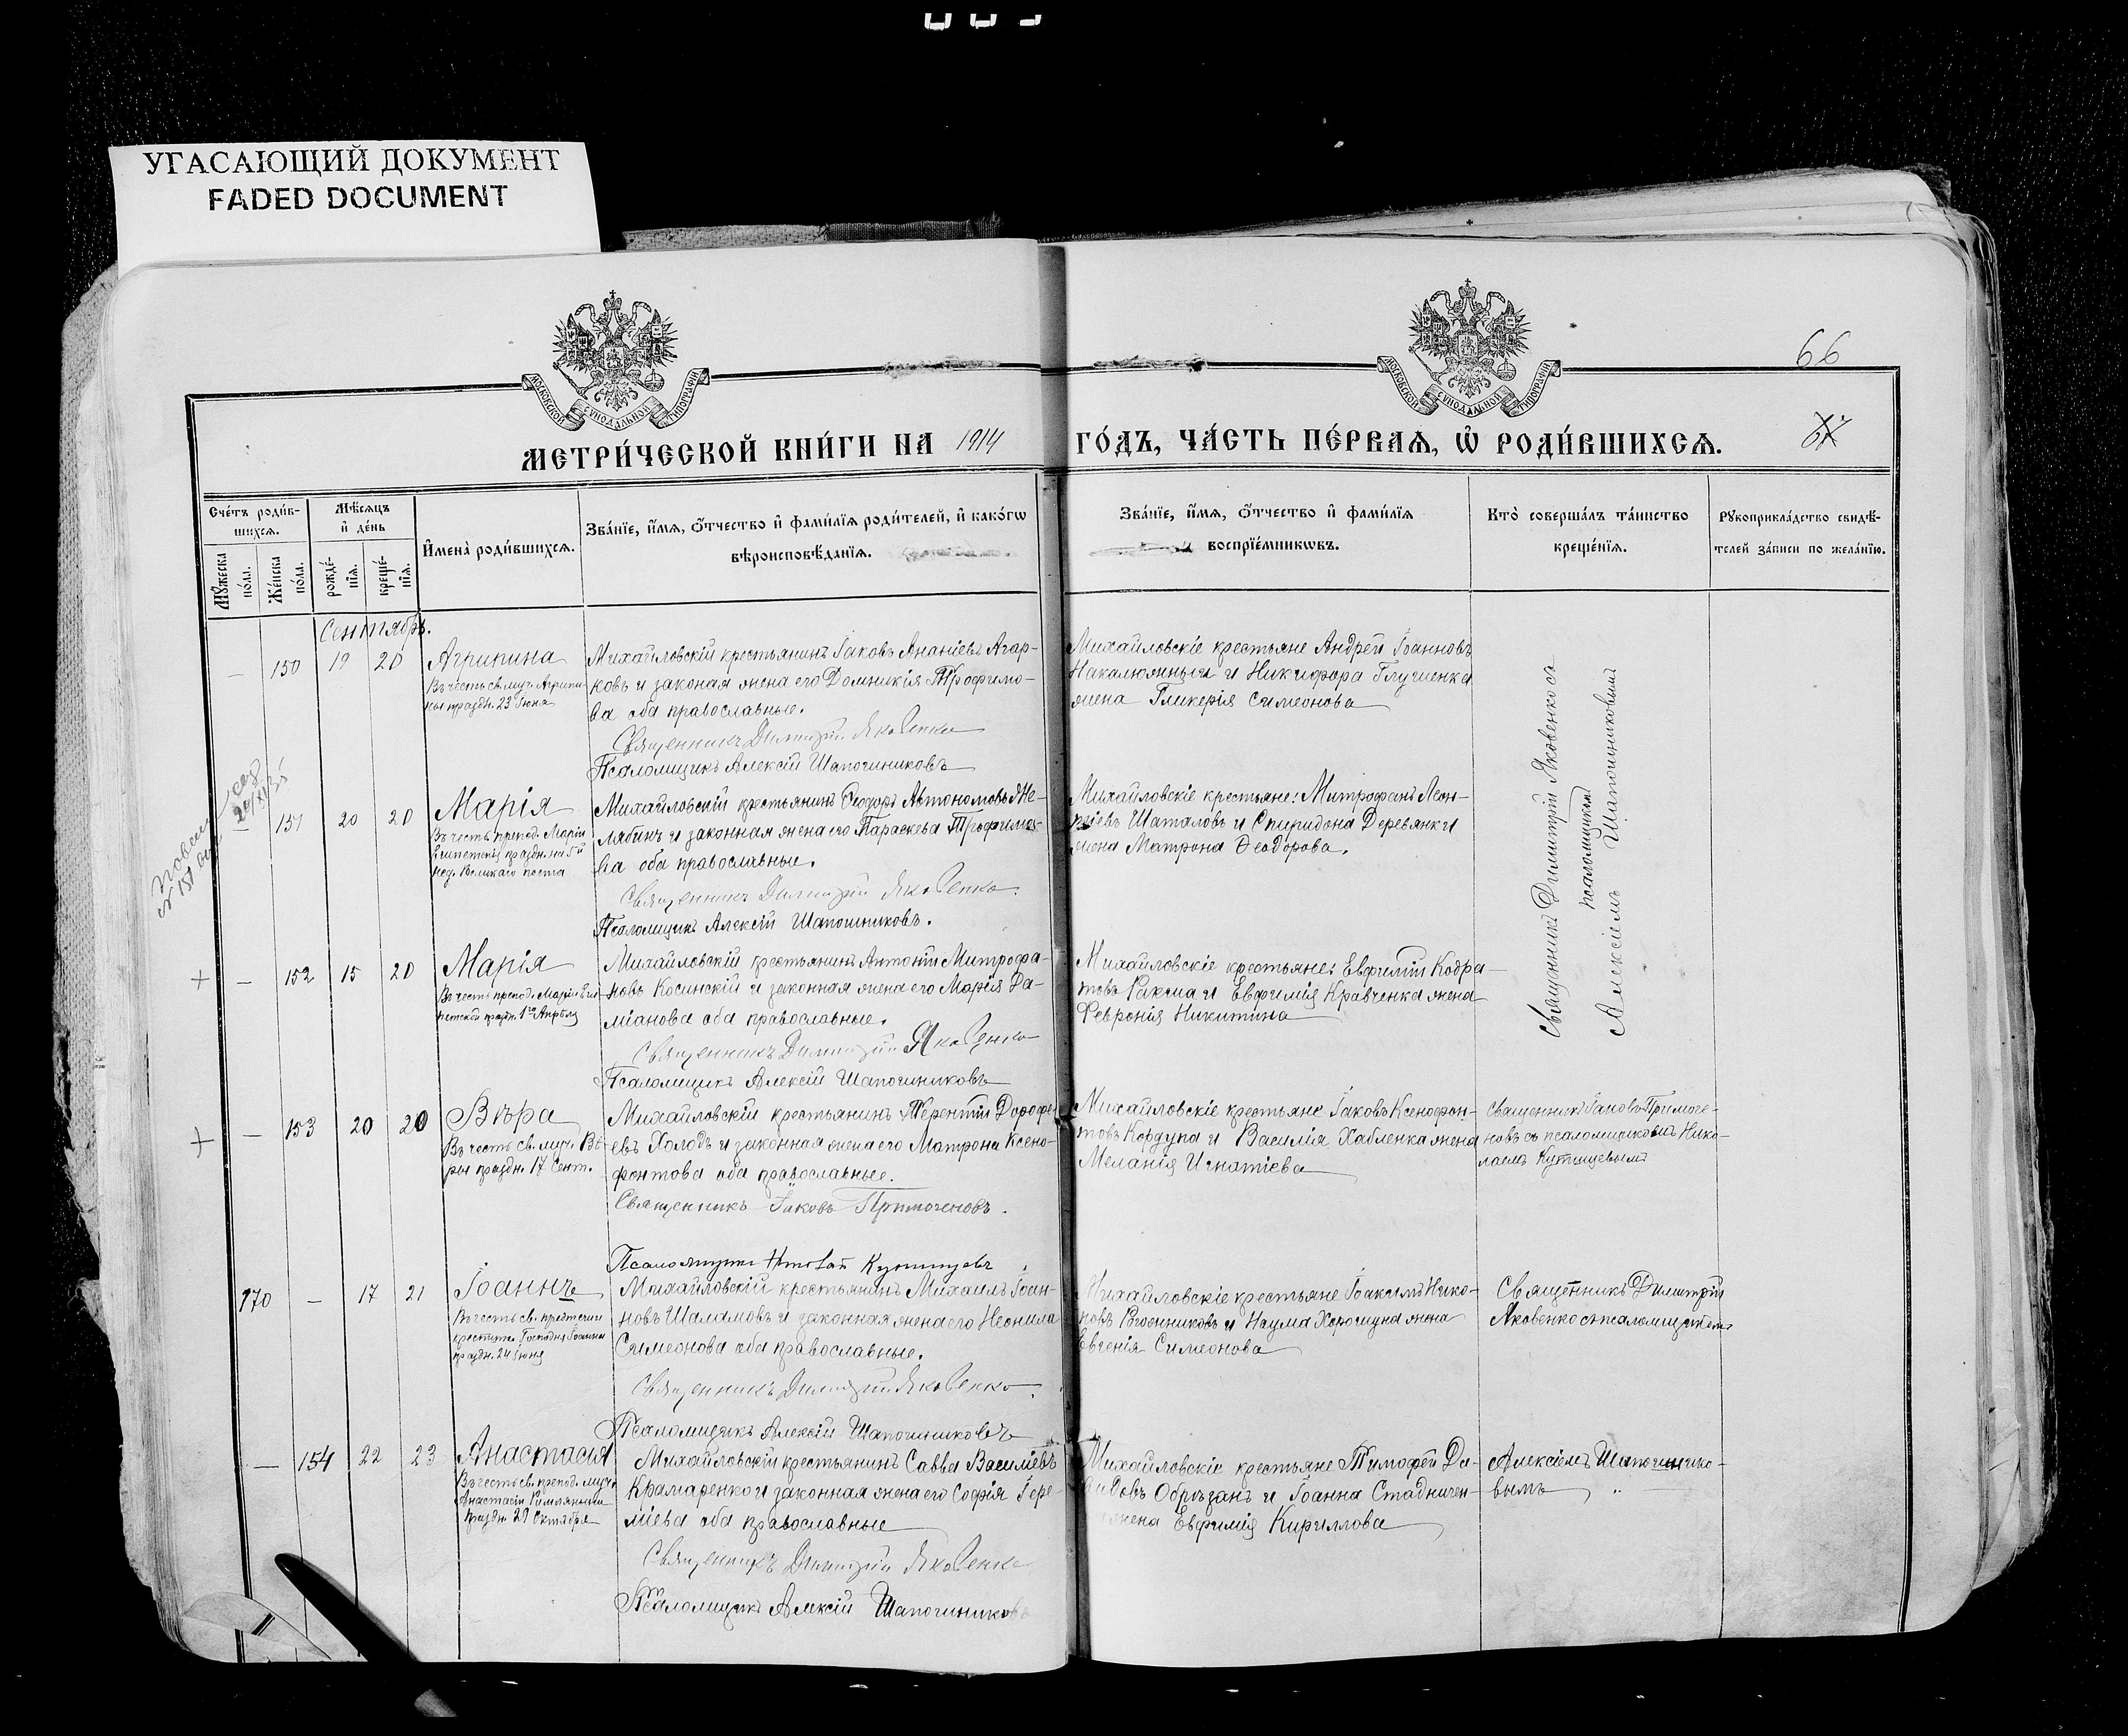 УГАСАЮЩИЙ ДОКУМЕНТ
FADED DOCUMENT
МОСКОВСКОЙ СѴНОДАЛЬНОЙ ТИПОГРАФІИ
МОСКОВСКОЙ СѴНОДАЛЬНОЙ ТИПОГРАФІИ
66
МЕТРИ́ЧЕСКОЙ КНИ́ГИ НА 1914 ГО́ДЪ, ЧА́СТЬ ПЕ́РВАѦ, Ѡ҆ РОДИ́ВШИХСѦ.
Сче́тъ роди́в-
шихсѧ.
Мꙋ́жеска по́ла.
Же́нска по́ла.
Мѣ́сѧцъ
и҆ де́нь
рожде́-
нїѧ.
креще́-
нїѧ.
И҆мена̀ роди́вшихсѧ.
Зва́нїе, и҆́мѧ, ѻ҆́тчество и҆ фами́лїѧ роди́телей, и҆ како́гѡ
вѣроисповѣ́данїѧ.
Зва́нїе, и҆́мѧ, ѻ҆́тчество и҆ фами́лїѧ
воспрїе́мникѡвъ.
Кто̀ соверша́лъ та́инство
креще́нїѧ.
Рꙋкоприкла́дство свидѣ́-
телей за́писи по жела́нїю.
Сентябрь.
— 150 19 20 Агрипина
Въ честь св. муч. Агрипи-
ны праздн. 23 Іюня
Михайловскій крестьянинъ Іаковъ Ананіевъ Агар-
ковъ и законая жена его Домникія Трофимо-
ва оба православные.
Священникъ Димитрій Яковенко
Псаломщикъ Алексій Шапошниковъ
Михайловскіе крестьяне Андрей Іоанновъ
и Никифора Глушенка
жена Гликерія Симеонова
Священникъ Димитрій Яковенко съ
псаломщикомъ
Алексіемъ Шапошниковымъ
— 151 20 20 Марія
Въ честь препод. Маріи
Египетскія праздн. на 5й
нед. Великаго поста
Михайловскій крестьянинъ Ѳеодоръ Автономовъ Же-
лябинъ и законная жена его Параскева Трофимо-
ва оба православные.
Священникъ Димитрій Яковенко.
Псаломщикъ Алексій Шапошниковъ.
Михайловскіе крестьяне: Митрофанъ Леон-
тіевъ Шаталовъ и Спиридона Деревянки
жена Матрона Ѳеодорова.
+ — 152 15 20 Марія
Въ честь препод. Маріи Еги-
петской праздн. 1го Апрѣля
Михайловскій крестьянинъ Антоній Митрофа-
новъ Косинскій и законная жена его Марія Да-
міанова оба православные.
Священникъ Димитрій Яковенко
Псаломщикъ Алексій Шапошниковъ
Михайловскіе крестьяне: Евфимій Кодра-
товъ Ракша и Евфимія Кравченка жена
Февронія Никитина
+ — 153 20 20 Вѣра
Въ честь св. муч. Вѣ-
ры праздн. 17 Сент.
Михайловскій крестьянинъ Терентій Дорофе-
евъ Холодъ и законная жена его Матрона Ксено-
фонтова оба православные.
Священникъ Іаковъ Примогеновъ.
Псаломщикъ Николай Кутищевъ
Михайловскіе крестьяне Іаковъ Ксенофон-
товъ Кордупа и Василія Хабленка жена
Меланія Игнатіева
Священникъ Іаковъ Примоге-
новъ съ псаломщикомъ Нико-
лаемъ Кутищевымъ
170 — 17 21 Іоаннъ
Въ честь св. предтечи и
крестите. Господня Іоанна
праздн. 24 Іюня
Михайловскій крестьянинъ Михаилъ Іоан-
новъ Шаламовъ и законная жена его Неонила
Симеонова оба православные.
Священникъ Димитрій Яковенко.
Псаломщикъ Алексій Шапошниковъ
Михайловскіе крестьяне Іоакимъ Нико-
новъ и Наума Хорошуна жена
Евгенія Симеонова
Священникъ Димитрій
Яковенко съ псаломщикомъ
— 154 22 23 Анастасія
Въ честь св. препод. муч.
Анастасіи Римляныни
праздн. 29 Октября
Михайловскій крестьянинъ Савва Василіевъ
Крамаренко и законная жена его Софія Іере-
міева оба православные
Священникъ Димитрій Яковенко
Псаломщикъ Алексій Шапошниковъ
Михайловскіе крестьяне Тимофей Да-
видовъ Обрѣзанъ и Іоанна Стадничен-
жена Евфимія Кириллова
Алексіемъ Шапошнико-
вымъ "